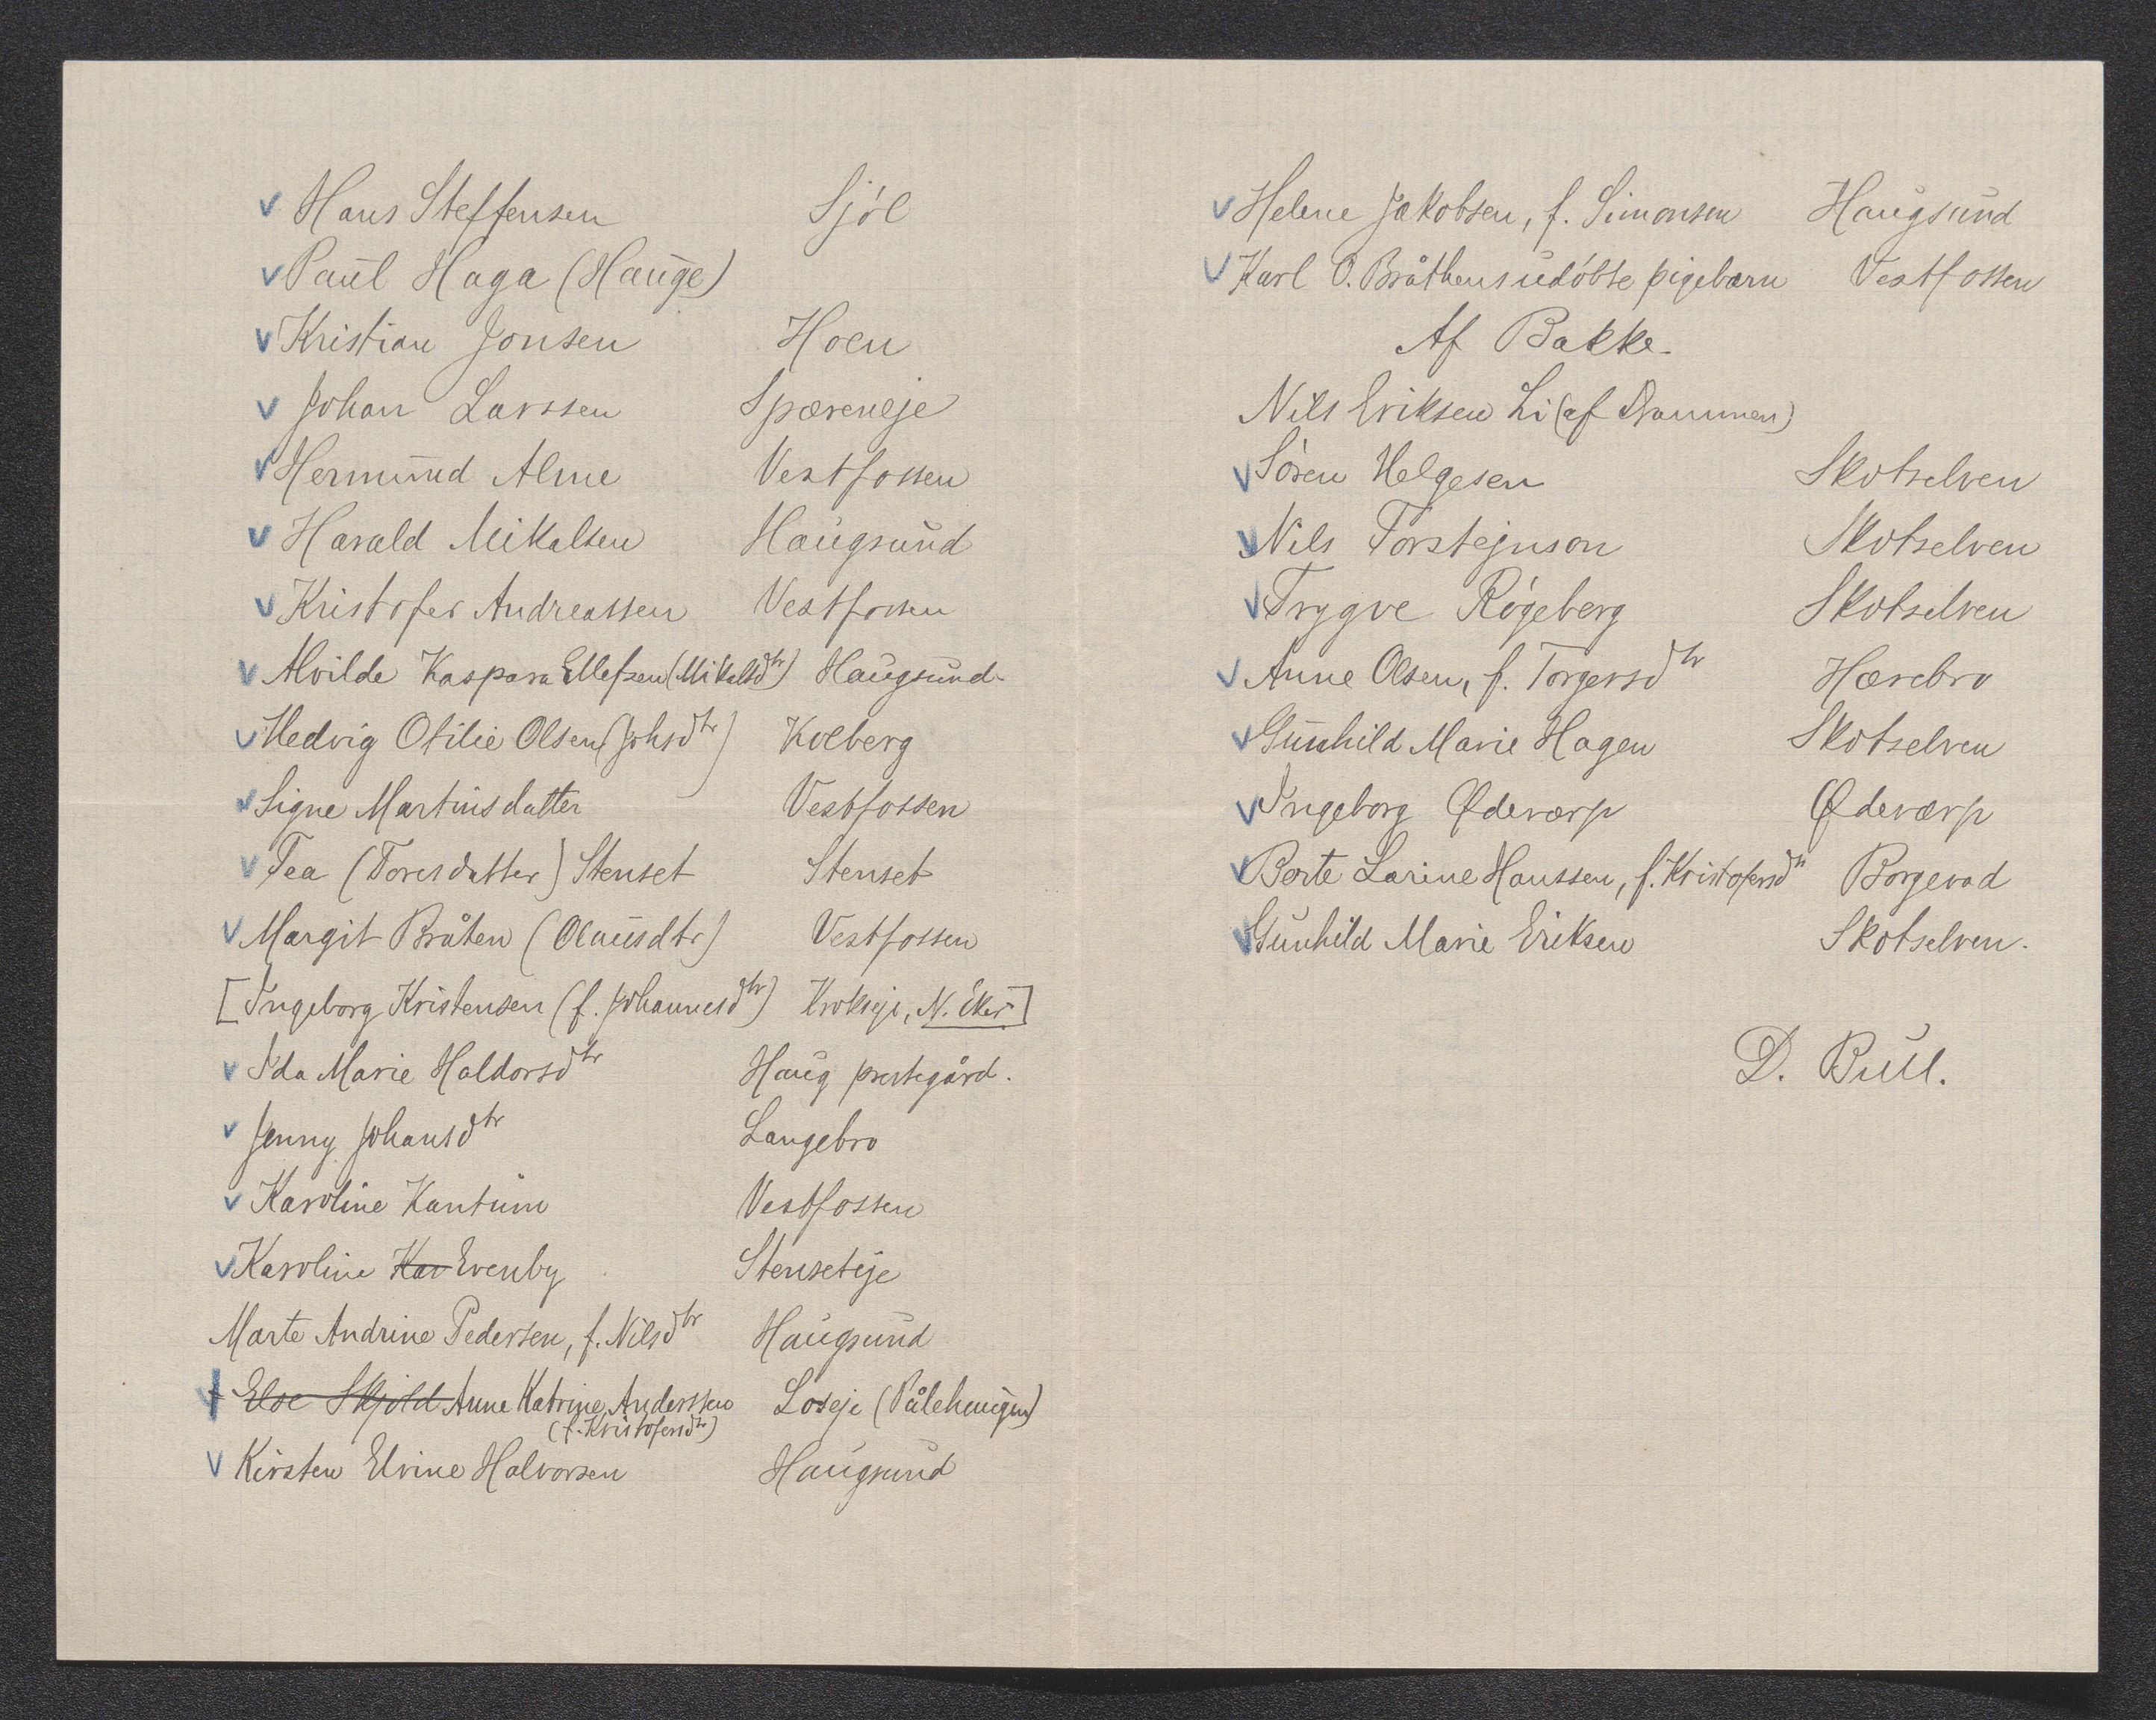 v Hans Steffensen Sjøl
v Paul Haga (Hauge)
v Kristian Jonsen Hoen
v Johan Larssen Spæreneje
v Hermund Alme Vestfossen
v Harald Mikalsen Haugsund
v Kristofer Andreassen Vestfossen
v Alvilde Kaspara Ellefsen (Mikalsdtr) Haugsund
v Hedvig Otilie Olsen (Johsdtr) Kolberg
v Signe Martinsdatter Vestfossen
v Tea (Toresdatter) Stenset Stenset
v Margit Bråten (Olausdtr) Vestfossen
[Ingeborg Kristensen (f. Johannesdtr) Krokseje, N. Eker]
v Ida Marie Haldorsdtr Haug prestegård.
v Jenny Johansdtr Langebro
v Karoline Kantum Vestfossen
v Karoline Kar Evenby Stenseteje
Marte Andrine Pedersen, f. Nilsdtr Haugsund
v Else Skjold Anne Katrine Anderssen Loseje (Pålehaugen)
(f. Kristofersdtr)
v Kirsten Elvine Halvorsen Haugsund
v Helene Jakobsen, f. Simonsen Haugsund
v Karl O. Bråthens udøbte pigebarn Vestfossen
Af Bakke.
Nils Eriksen Li (af Drammen)
v Sören Helgesen Skotselven
v Nils Torstejnson Skotselven
v Trygve Rögeberg Skotselven
v Anne Olsen, f. Torgersdtr Hærebro
v Gunhild Marie Hagen Skotselven
v Ingeborg Ødeværp Ødeværp
v Berte Larine Hanssen, f. Kristofersdtr Borgevad
v Gunhild Marie Eriksen Skotselven.
D. Bull.